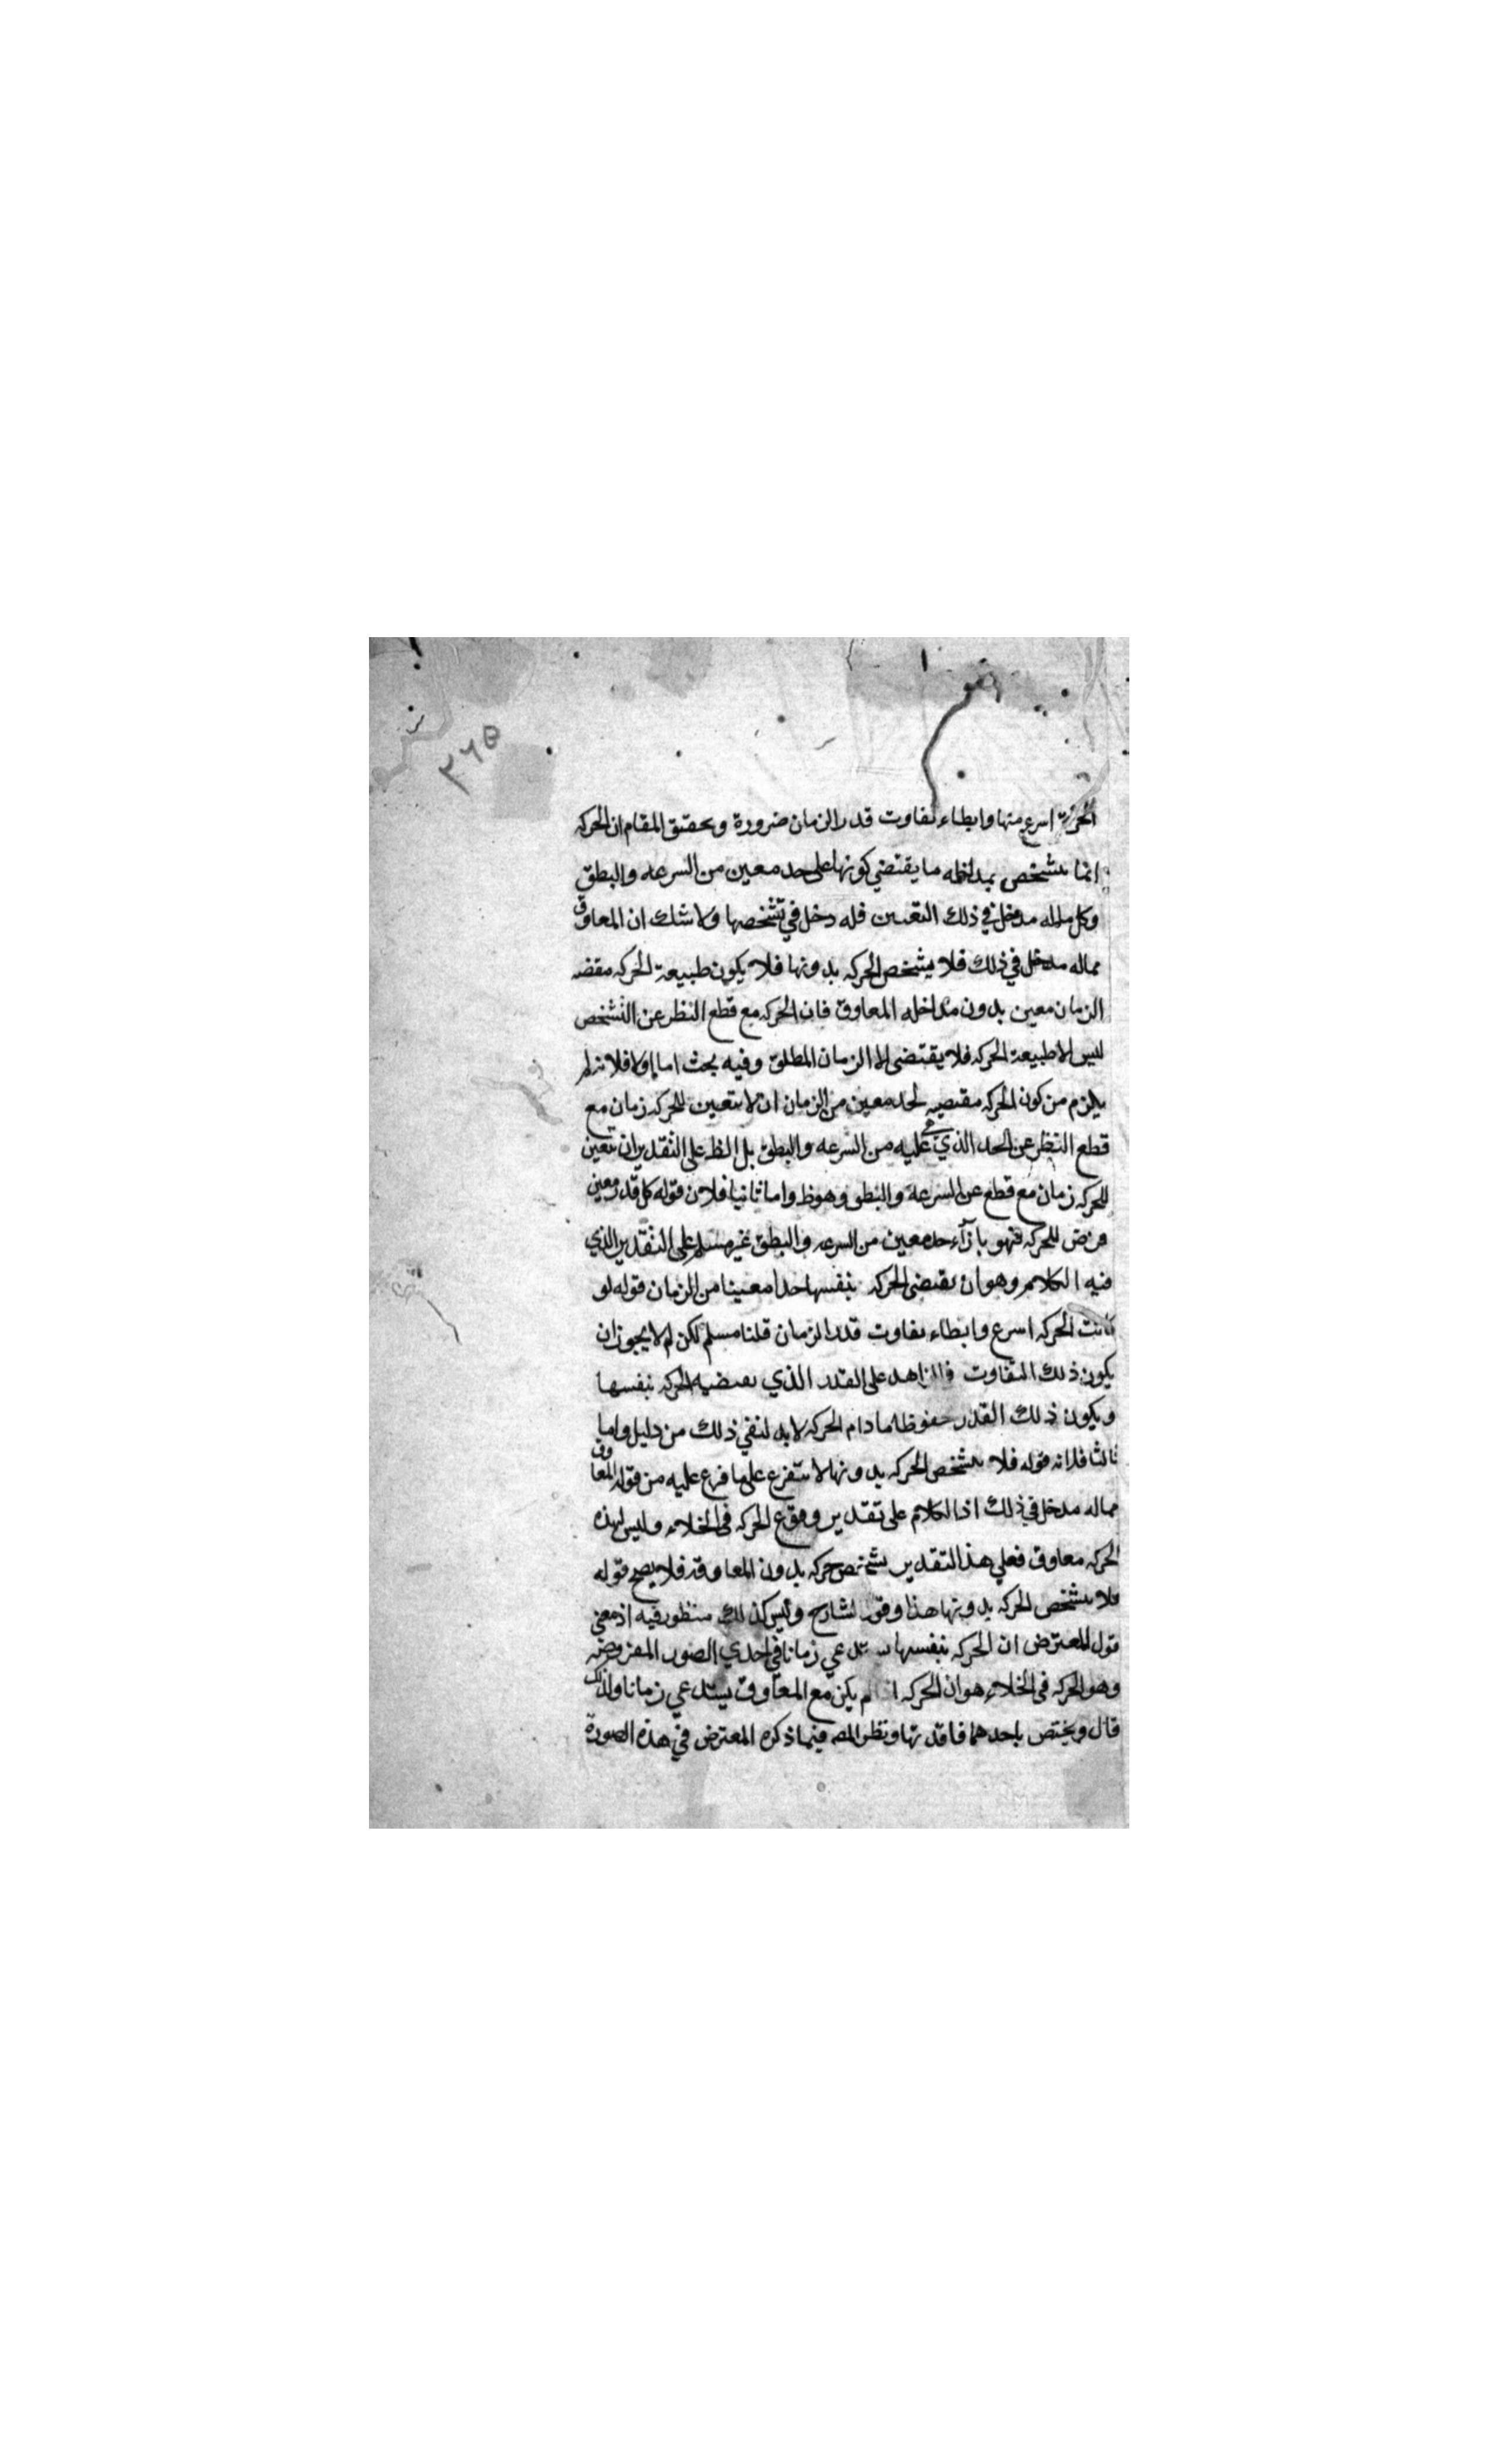 ٢٦٥
الحركة اسرع منها وابطاء تفاوت قدر الزمان ضرورة وتحقيق المقام ان الحركه
انما يتشخص بمداخله ما يقتضي كونها على حد معين من السرعه والبطؤ
وكل ماله مدخل في ذلك التعيين فله دخل في تشخصها ولا شك ان المعاوق
مماله مدخل في ذلك فلا يتشخص الحركه بدونها فلا يكون طبيعة الحركه مقتضيه
الزمان معين بدون مداخله المعاوق فان الحركه مع قطع النظر عن التشخص
ليس الا طبيعة الحركه فلا يقتضى الا الزمان المطلق وفيه بحث اما اولا فلانه لم
يلزم من كون الحركه مقتضيه لحد معين من الزمان ان لا يتعين للحركه زمان مع
قطع النظر عن الحد الذي هي عليه من السرعه والبطؤ بل الظ على التقدير ان يتعين
للحركه زمان مع قطع عن السرعه والبطؤ وهو ظ واما ثانيا فلان قوله كل قدر معين
عرض للحركه فهو بازآء حد معين من السرعه والبطؤ غير مسلم على التقدير الذي
فيه الكلام وهو ان يقتضى الحركه بنفسها حدا معينا من الزمان قوله لو
كانت الحركه اسرع وابطاء تفاوت قدر الزمان قلنا مسلم لكن لم لا يجوز ان
يكون ذلك التفاوت في الزاهد على القدر الذي يقتضيه الحركه بنفسها
ويكون ذلك القدر محفوظا ما دام الحركه لا بد لنفي ذلك من دليل واما
ثالثا فلانه قوله فلا يتشخص الحركه بدونها لا يتفرع على ما فرع عليه من قوله المعاوق
مماله مدخل في ذلك اذ الكلام على تقدير وقوع الحركه فى الخلاء وليس لهذه
الحركه معاوق فعلي هذا التقدير يتشخص حركه بدون المعاوقه فلا يصح قوله
فلا يتشخص الحركه بدونها هذا وقول الشارح وليس كذلك منظور فيه اذ معنى
قول المعترض ان الحركه بنفسها يستدعي زمانا في احدي الصور المفروضه
وهو الحركه فى الخلاء هو ان الحركه لم يكن مع المعاوق يستدعي زمانا ولذلك
قال ويختص باحدهما فاقدتها ونظر المصه فيما ذكره المعترض في هذه الصورة